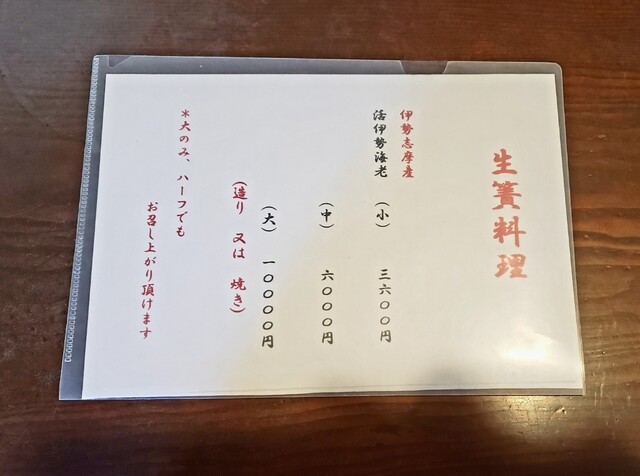 生簀料理
伊勢志摩産
活伊勢海老 (小) 三六〇〇円
(中) 六〇〇〇円
(大) 一〇〇〇〇円
(造り 又は 焼き)
*大のみ、ハーフでも
お召し上がり頂けます